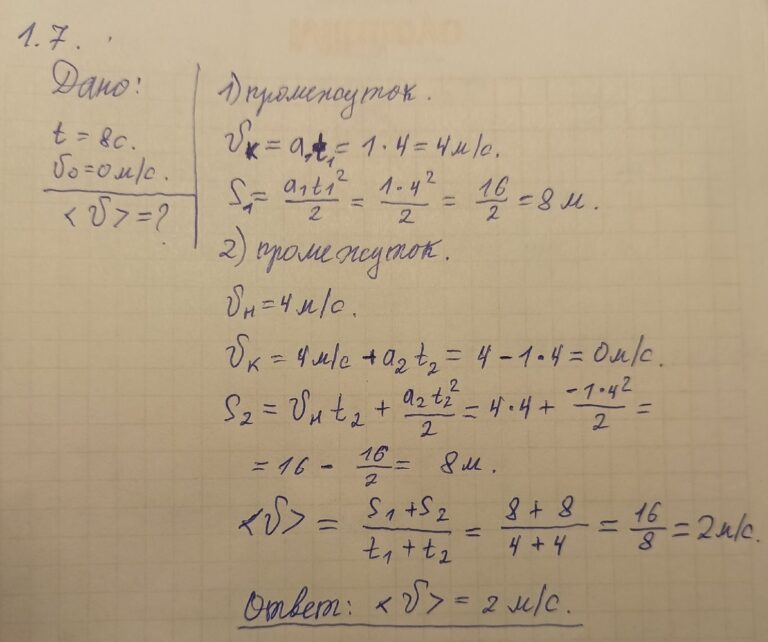 1.7.
Дано:
t = 8c.
υ₀ = 0 м/с.
<υ> = ?
1) промежуток.
υк = a₁t₁ = 1·4 = 4 м/с.
S₁ = a₁t₁²/2 = 1·4²/2 = 16/2 = 8 м.
2) промежуток.
υн = 4 м/с.
υк = 4 м/с + a₂t₂ = 4 - 1·4 = 0 м/с.
S₂ = υн t₂ + a₂t₂²/2 = 4·4 + -1·4²/2 =
= 16 - 16/2 = 8 м.
<υ> = S₁+S₂/t₁+t₂ = 8+8/4+4 = 16/8 = 2 м/с.
Ответ: <υ> = 2 м/с.